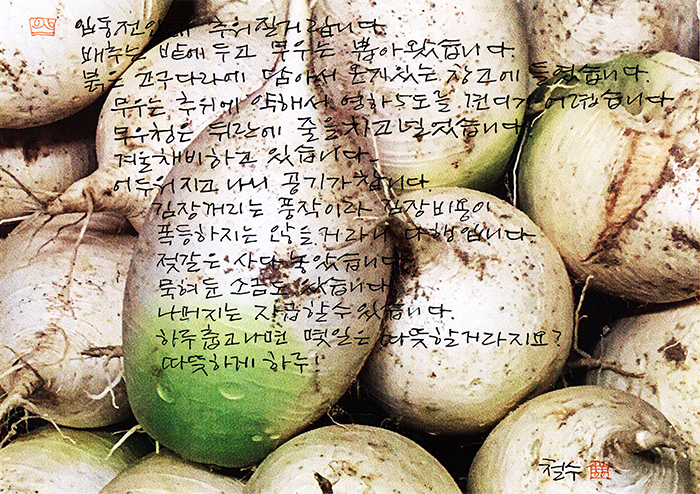 입동전인데 추워질거랍니다.
배추는 밭에 두고 무우는 뽑아왔습니다.
붉은 고구다라에 담아서 온기있는 창고에 들였습니다.
무우는 추위에 약해서 영하5도를 견디기 어렵습니다
무우청은 뒤란에 줄을치고 널었습니다.
겨울채비하고 있습니다.
어두워지고 나니 공기가 찹니다.
김장꺼리는 풍작이라 김장비용이
폭등하지는 않을거라니 다행입니다.
젓갈은 사다 놓았습니다.
묵혀둔 소금도 있습니다.
나머지는 자급할수있습니다.
하루춥고나면 몇일은 따뜻할거라지요?
따뜻하게 하루!
철수